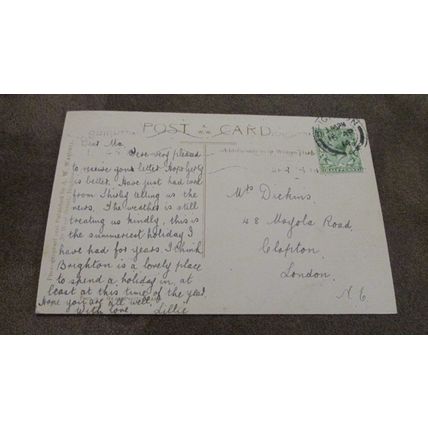 POST CARD
Dear Ma
Was very pleased
to receive your letter. Hope
is better. Have just had card
from telling us the
news. The weather is still
treating us kindly, this is
the summeriest holiday I
have had for years. I think
Brighton is a lovely place
to spend a holiday in, at
least at this time of the year.
Hope you are all well,
With love Lillie
Mrs Dickins,
48 Mayola Road,
Clapton,
London,
N.E